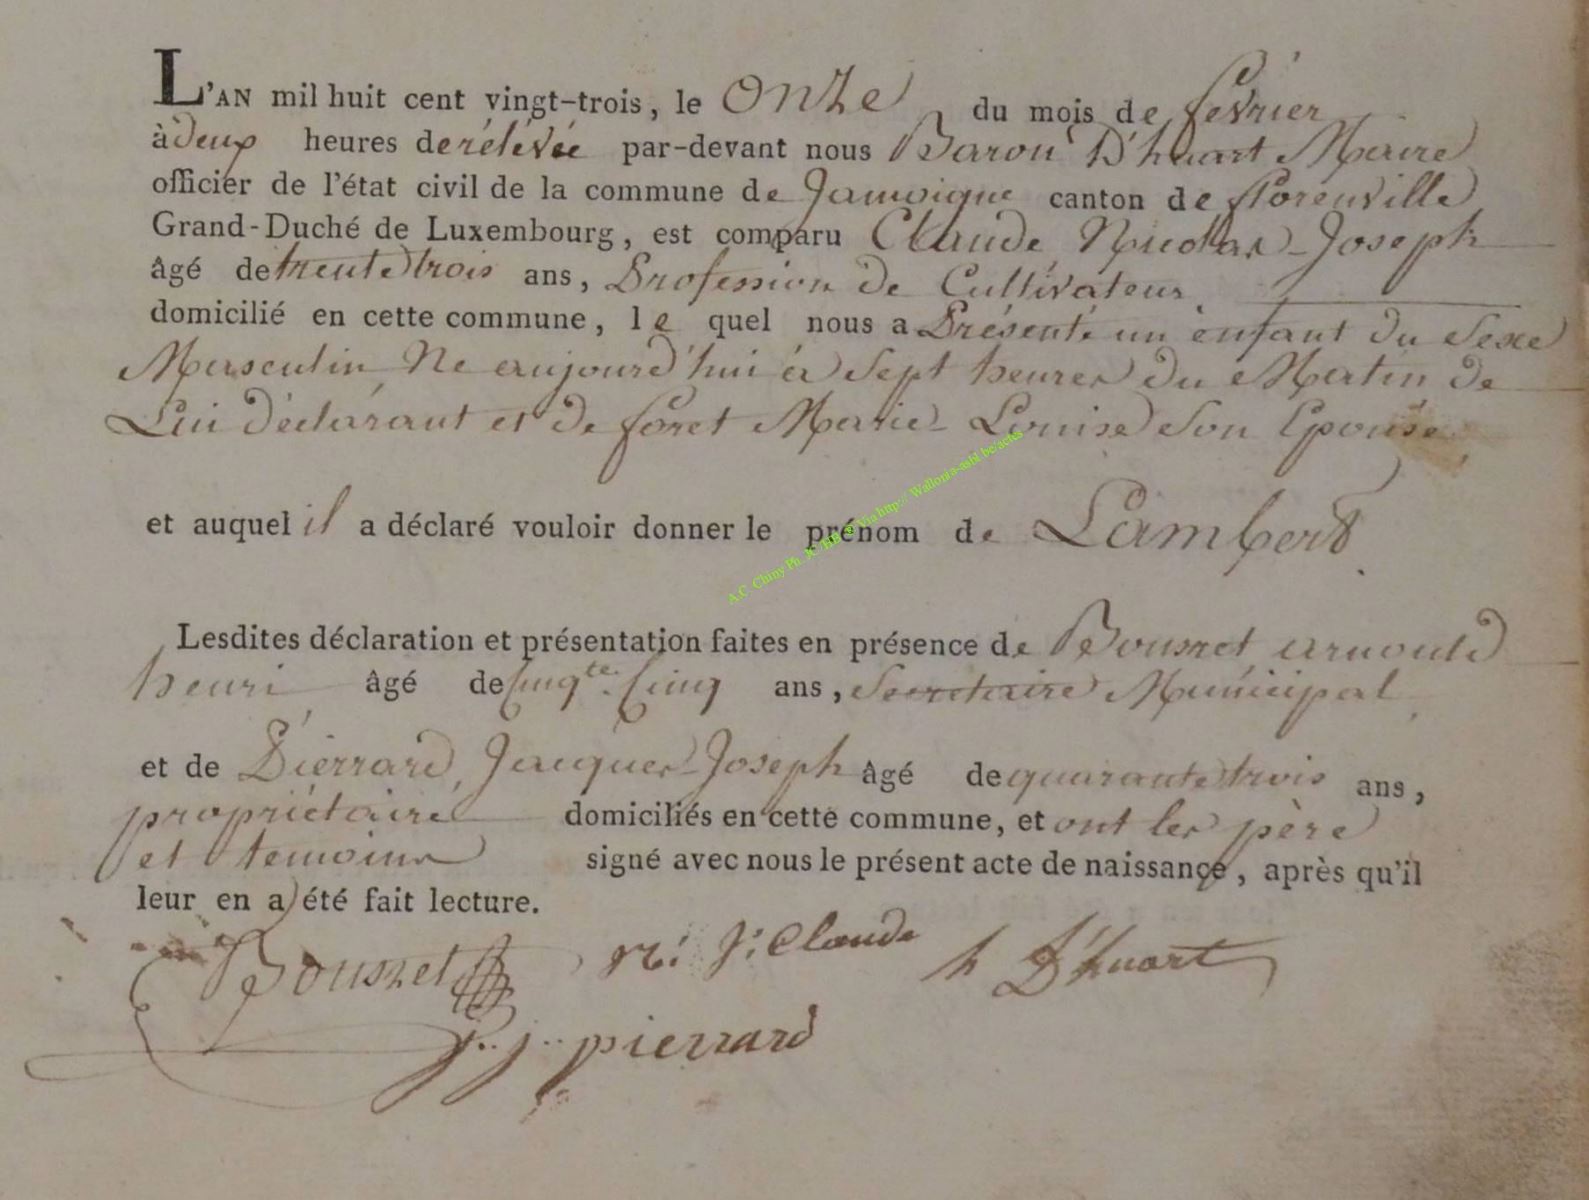 L'AN mil huit cent vingt-trois, le Onze du mois de fevrier
à deux heures de rélévée par-devant nous Baron D'huart Maire
officier de l'état civil de la commune de Jamoigne canton de florenville
Grand-Duché de Luxembourg, est comparu Claude, Nicolas-Joseph
âgé de trente trois ans, Profession de Cultivateur.
domicilié en cette commune, le quel nous a Présenté un enfant du Sexe
Masculin, Ne aujourd'hui à Sept heures du Matin de
Lui déclarant et de foret Marie-Louise Son Epouse
et auquel il a déclaré vouloir donner le prénom de Lambert.
A.C. Chiny Ph. JC HB © Via http:// Wallonia-asbl be/actes
Lesdites déclaration et présentation faites en présence de Bousret arnould
henri âgé de Cinqte. Cinq ans, Secretaire Municipal
et de Pierrard, Jacques-Joseph âgé de quarante trois ans,
propriétaire domiciliés en cette commune, et ont les père
et temoins signé avec nous le présent acte de naissance, après qu'il
leur en a été fait lecture.
Bousret N: J: Claude h D'huart
J.. J.. pierrard